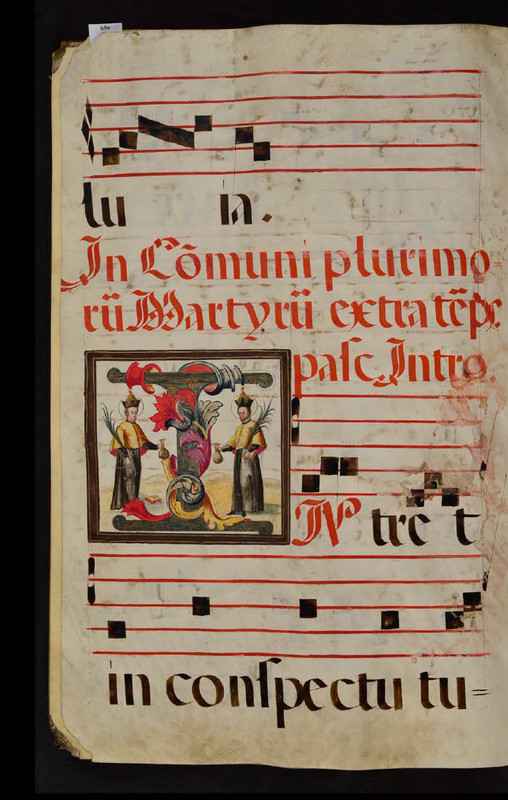 lu ia.
In Cõmuni plurimo
rũ Martyrũ extra tẽp.
paſc. Intro.
IN tret
in conſpectu tu=